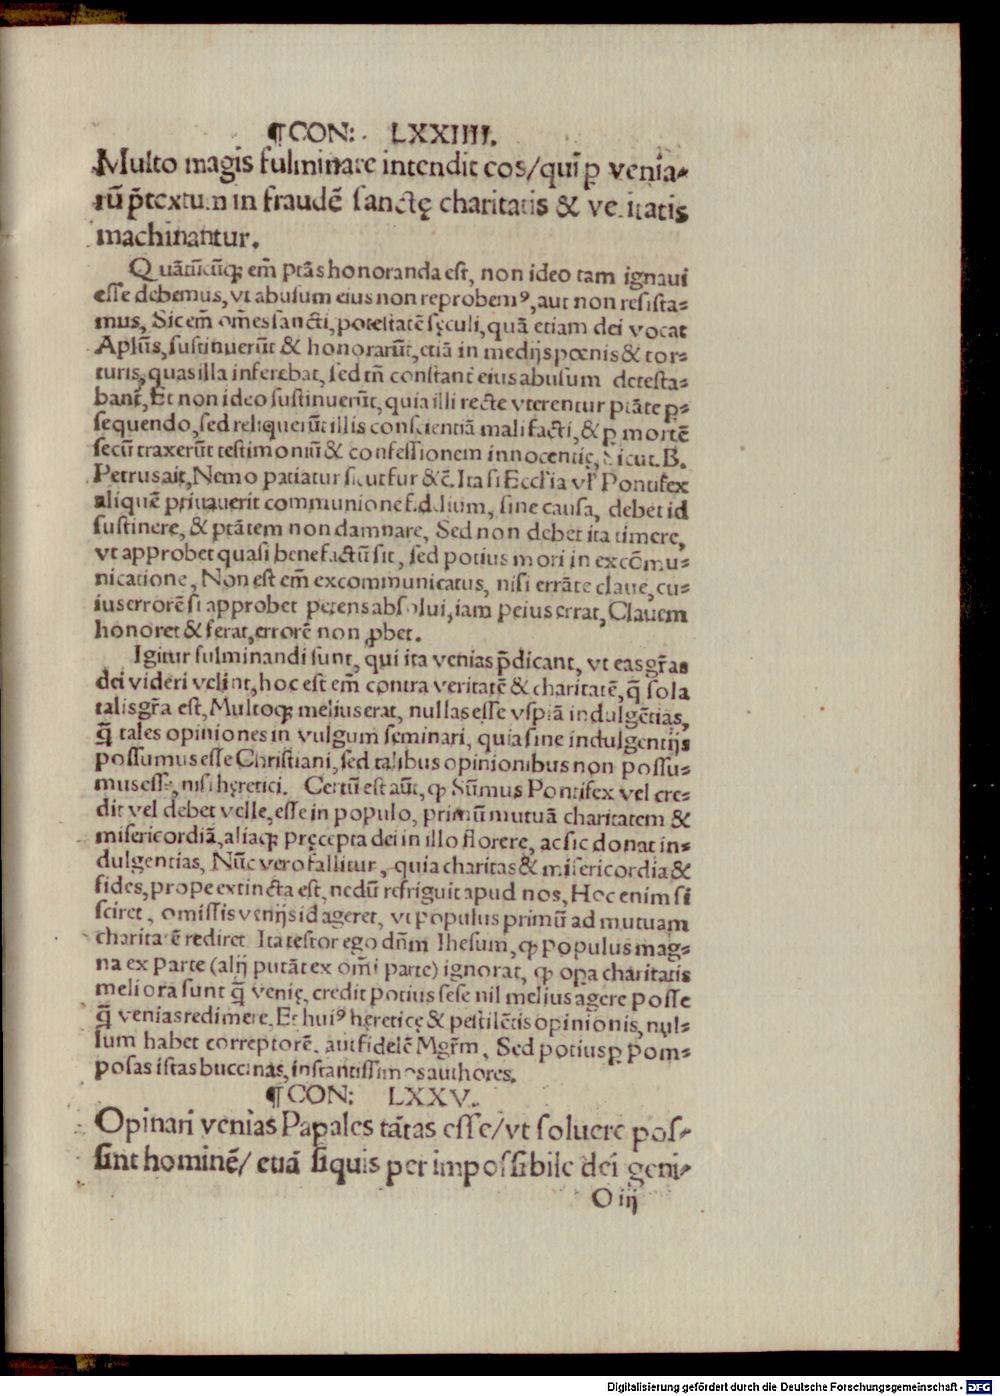 ¶CON: LXXIIII.
Multo magis fulminare intendit eos/qui ꝑ venia-
rū p̄textum in fraudē sanctę charitatis & veritatis
machinantur.
Quātūcūq; em̄ ptās honoranda est, non ideo tam ignaui
esse debemus, vt abusum eius non reprobemꝰ, aut non resista-
mus, Sic em̄ om̄es sancti, potestatē sęculi, quā etiam dei vocat
Aplūs, sustinuerūt & honorarūt, etiā in medijs pœnis & tor-
turis, quas illa inferebat, sed tn̄ constant̄ eius abusum detesta-
bant̄, Et non ideo sustinuerūt, quia illi recte vterentur ptāte ꝑ-
sequendo, sed reliquerūt illis conscientiā mali facti, & ꝑ mortē
secū traxerūt testimoniū & confessionem innocentię, Sicut. B.
Petrus ait, Nemo patiatur sicut fur &c̄. Ita si Eccl̄ia vl̄ Pontifex
aliquē priuauerit communione fidelium, sine causa, debet id
sustinere, & ptātem non damnare, Sed non debet ita timere,
vt approbet quasi benefactū sit, sed potius mori in excōmu-
nicatione, Non est em̄ excommunicatus, nisi errāte claue, cu-
ius errorē si approbet petens absolui, iam peius errat, Clauem
honoret & ferat, errorē non ꝓbet.
Igitur fulminandi sunt, qui ita venias p̄dicant, vt eas gr̄as
dei videri velint, hoc est em̄ contra veritatē & charitatē, q̄ sola
talis gr̄a est, Multoq; melius erat, nullas esse vspiā indulgētias,
q̄ tales opiniones in vulgum seminari, quia sine indulgentijs
possumus esse Christiani, sed talibus opinionibus non possu-
mus esse, nisi hęretici. Certū est aūt, ꝙ Sūmus Pontifex vel cre-
dit vel debet velle, esse in populo, primū mutuā charitatem &
misericordiā, aliaq; pręcepta dei in illo florere, ac sic donat in-
dulgentias, Nūc vero fallitur, quia charitas & misericordia &
fides, prope extincta est, nedū refriguit apud nos, Hoc enim si
sciret, omissis venijs id ageret, vt populus primū ad mutuam
charitatē rediret Ita testor ego dn̄m Ihesum, ꝙ populus mag-
na ex parte (alij putāt ex om̄i parte) ignorat, ꝙ oꝑa charitatis
meliora sunt q̄ venię, credit potius sese nil melius agere posse
q̄ venias redimere. Et huiꝰ hęreticę & pestilētis opinionis, nul-
lum habet correptorē. aut fidelē Mgr̄m, Sed potius ꝑ pom-
posas istas buccinas, instantissimos authores.
¶CON: LXXV.
Opinari venias Papales tātas esse/vt soluere pos-
sint hominē/ etiā si quis per impossibile dei geni-
O iij
Digitalisierung gefördert durch die Deutsche Forschungsgemeinschaft - DFG